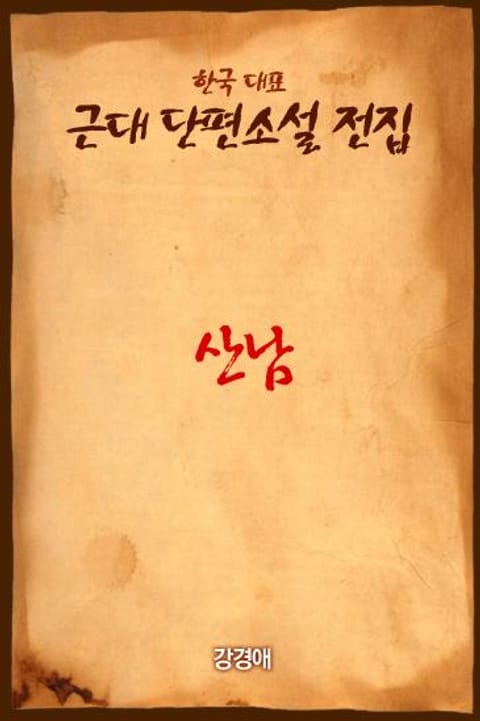 한국 대표
근대 단편소설 전집
산남
강경애